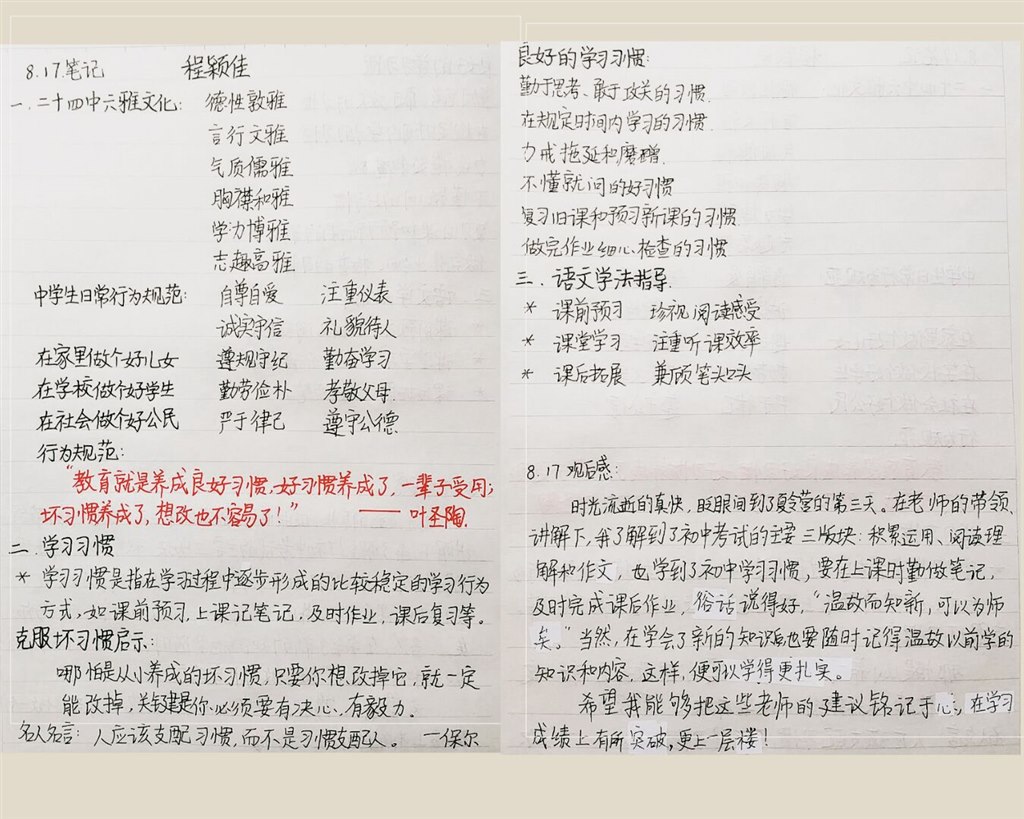 8.17笔记 程颖佳
一.二十四中六雅文化: 德性敦雅
言行文雅
气质儒雅
胸襟和雅
学力博雅
志趣高雅
中学生日常行为规范: 自尊自爱 注重仪表
诚实守信 礼貌待人
在家里做个好儿女 遵规守纪 勤奋学习
在学校做个好学生 勤劳俭朴 孝敬父母.
在社会做个好公民 严于律己 遵守公德.
行为规范:
"教育就是养成良好习惯,好习惯养成了,一辈子受用;
坏习惯养成了,想改也不容易了!" ——叶圣陶.
二.学习习惯
* 学习习惯是指在学习过程中逐步形成的比较稳定的学习行为
方式,如课前预习,上课记笔记,及时作业,课后复习等。
克服坏习惯启示:
哪怕是从小养成的坏习惯,只要你想改掉它,就一定
能改掉,关键是你必须要有决心,有毅力.
名人名言: 人应该支配习惯,而不是习惯支配人。 —保尔
良好的学习习惯:
勤于思考、敢于攻关的习惯.
在规定时间内学习的习惯.
力戒拖延和磨蹭.
不懂就问的好习惯
复习旧课和预习新课的习惯.
做完作业细心检查的习惯
三.语文学法指导.
* 课前预习 珍视阅读感受
* 课堂学习 注重听课效率
* 课后拓展 兼顾笔头口头
8.17观后感:
时光流逝的真快,眨眼间到了夏令营的第三天。在老师的带领、
讲解下,我了解到了初中考试的主要三版块:积累运用、阅读理
解和作文,也学到了初中学习习惯,要在上课时勤做笔记,
及时完成课后作业,俗话说得好,"温故而知新,可以为师
矣。"当然,在学会了新的知识后也要随时记得温故以前学的
知识和内容,这样,便可以学得更扎实。
希望我能够把这些老师的建议铭记于心,在学习
成绩上有所突破,更上一层楼!